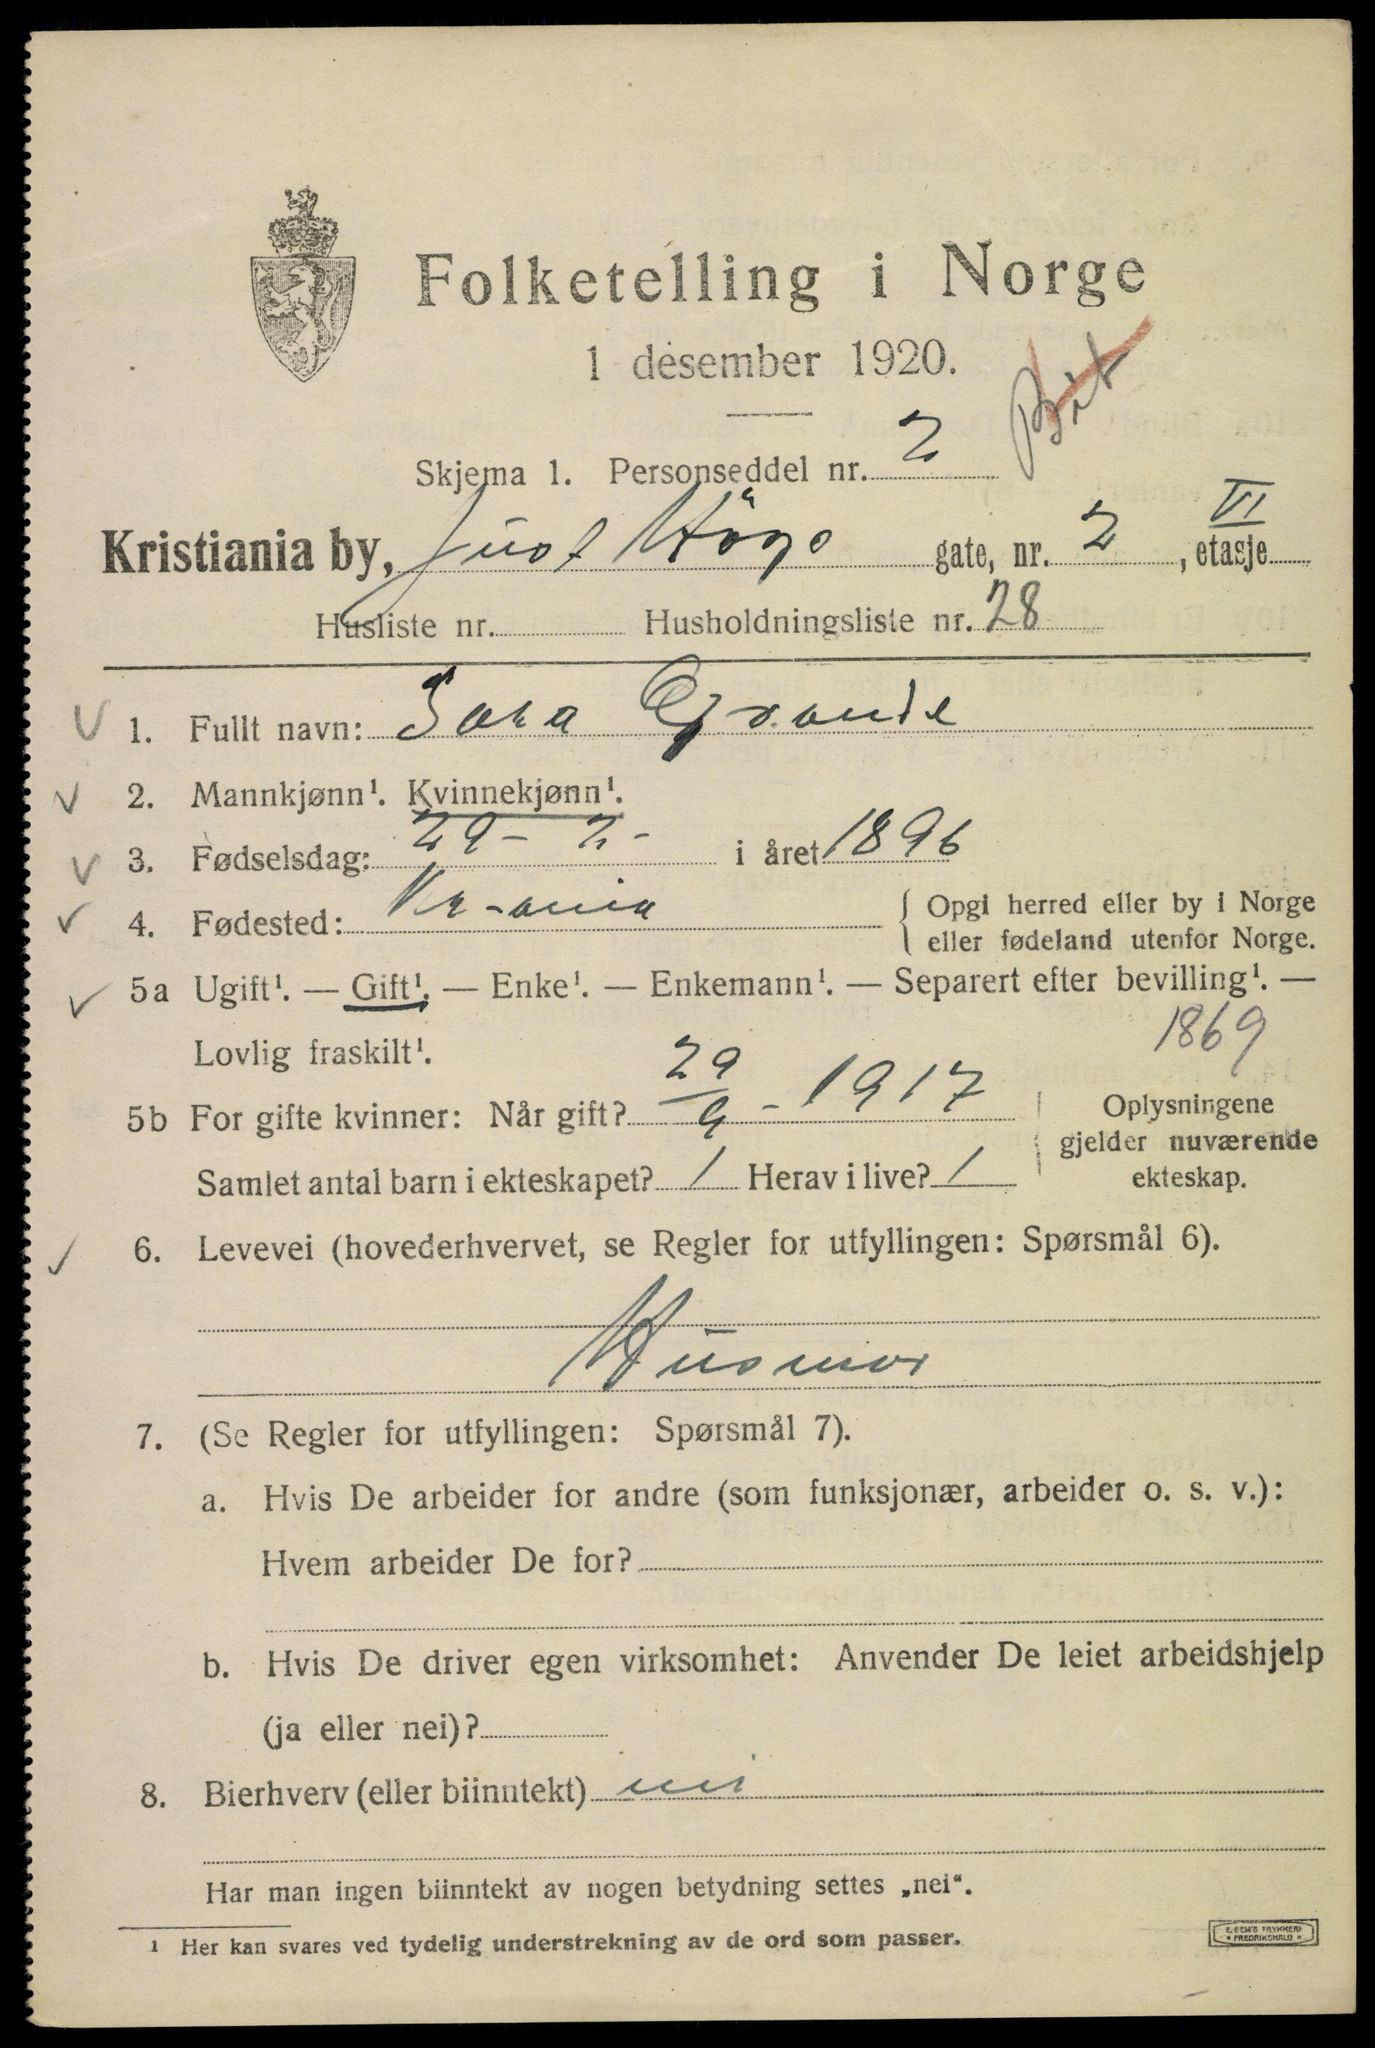 Folketelling i Norge
1 desember 1920.
Skjema 1. Personseddel nr. 2
Kristiania by, Just Högs gate, nr. 2, VI etasje
Husliste nr. Husholdningsliste nr. 28
1. Fullt navn: Sara Grande
2. Mannkjønn¹. Kvinnekjønn¹.
3. Fødselsdag: 29 - 2 - i året 1896
4. Fødested: Kr-ania
Opgi herred eller by i Norge
eller fødeland utenfor Norge.
5a Ugift¹. — Gift¹. — Enke¹. — Enkemann¹. — Separert efter bevilling¹. —
Lovlig fraskilt¹.
1869
5b For gifte kvinner: Når gift? 29/9 - 1917
Samlet antal barn i ekteskapet? 1 Herav i live? 1
Oplysningene
gjelder nuværende
ekteskap.
6. Levevei (hovederhvervet, se Regler for utfyllingen: Spørsmål 6).
Husmor
7. (Se Regler for utfyllingen: Spørsmål 7).
a. Hvis De arbeider for andre (som funksjonær, arbeider o. s. v.):
Hvem arbeider De for?
b. Hvis De driver egen virksomhet: Anvender De leiet arbeidshjelp
(ja eller nei)?
8. Bierhverv (eller biinntekt) nei
Har man ingen biinntekt av nogen betydning settes „nei“.
1 Her kan svares ved tydelig understrekning av de ord som passer.
E. SEM'S TRYKKERI
FREDRIKSHALD